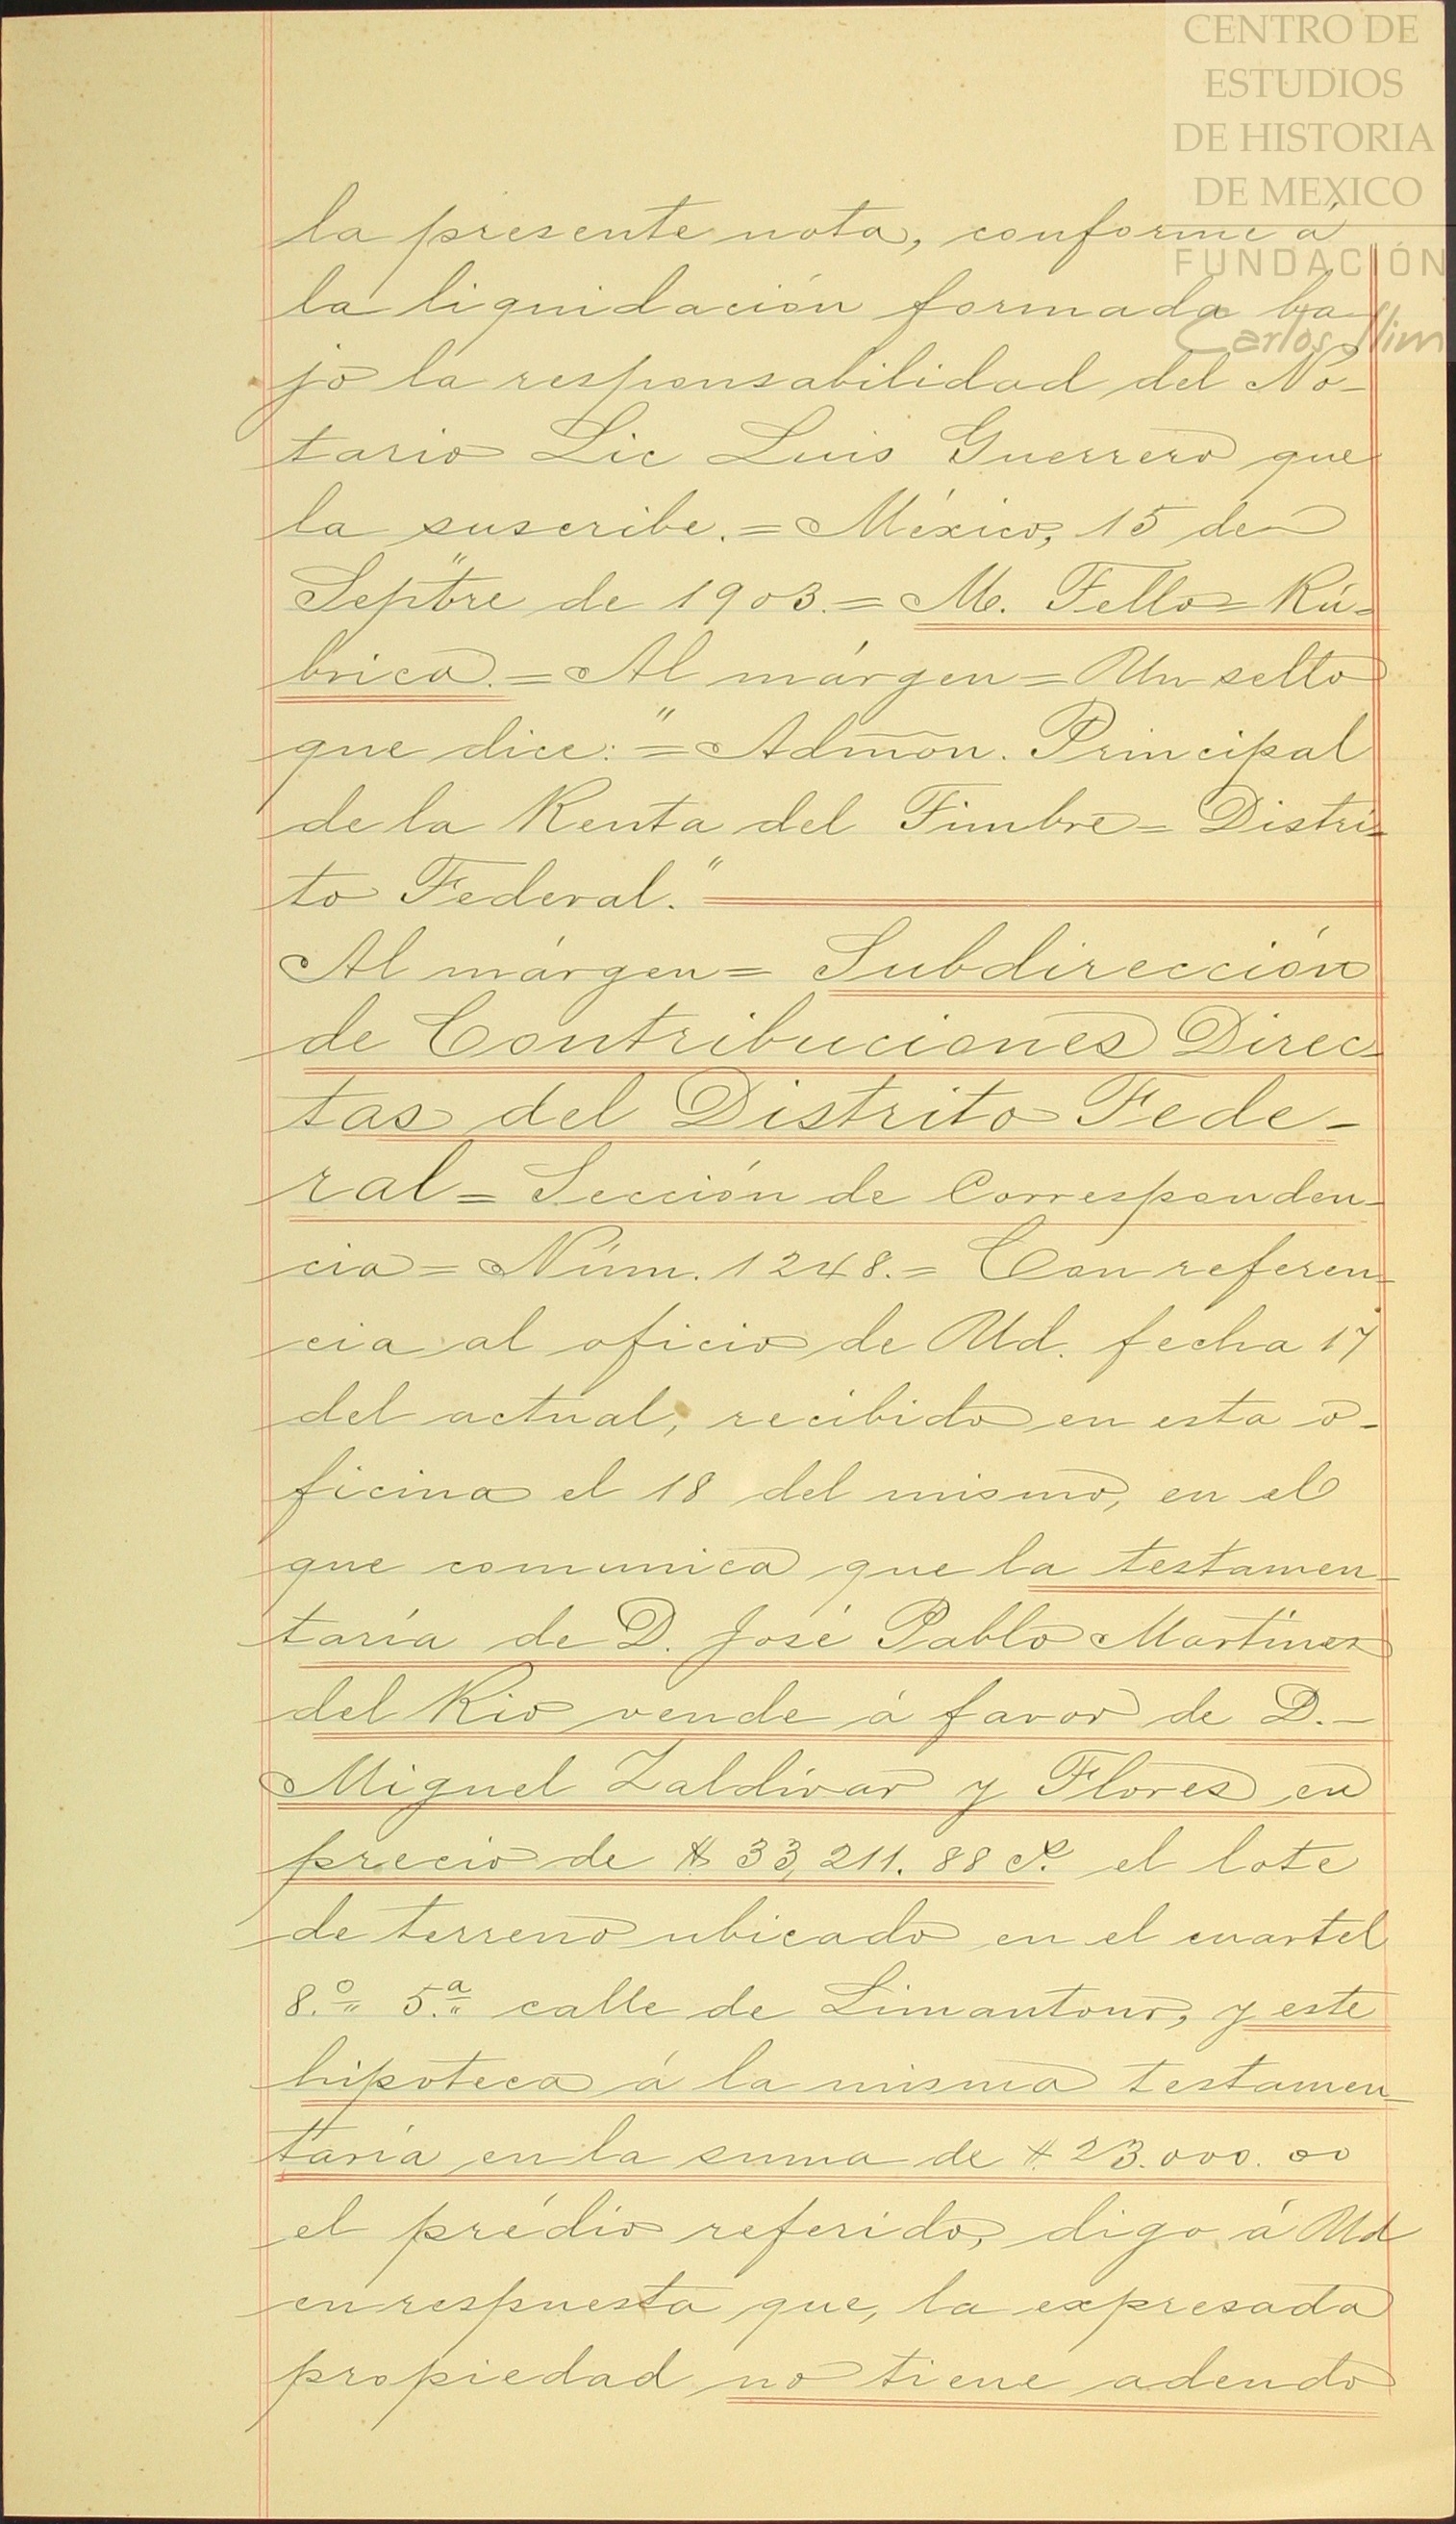 CENTRO DE
ESTUDIOS
DE HISTORIA
DE MEXICO
FUNDACIÓN
Carlos Slim
la presente nota, conforme á
la liquidación formada ba-
jo la responsabilidad del No-
tario Lic Luis Guerrero que
la suscribe.=México, 15 de
Sep"tbre de 1903.= M. Tello=Rú-
brica.=Al márgen=Un sello
que dice:"=Admōn. Principal
de la Renta del Timbre=Distri-
to Federal."
Al márgen= Subdirección
de Contribuciones Direc-
tas del Distrito Fede-
ral=Sección de Corresponden-
cia=Núm. 1248.=Con referen-
cia al oficio de Ud. fecha 17
del actual, recibido en esta o-
ficina el 18 del mismo, en el
que comunica que la testamen-
taría de D. José Pablo Martínez
del Rio vende á favor de D.-
Miguel Zaldívar y Flores en
precio de $ 33,211. 88 c. el lote
de terreno ubicado en el cuartel
8.º 5.ª calle de Limantour, y este
hipoteca á la misma testamen-
taría en la suma de $ 23.000. 00
el prédio referido, digo á Ud
en respuesta que, la expresada
propiedad no tiene adeudo